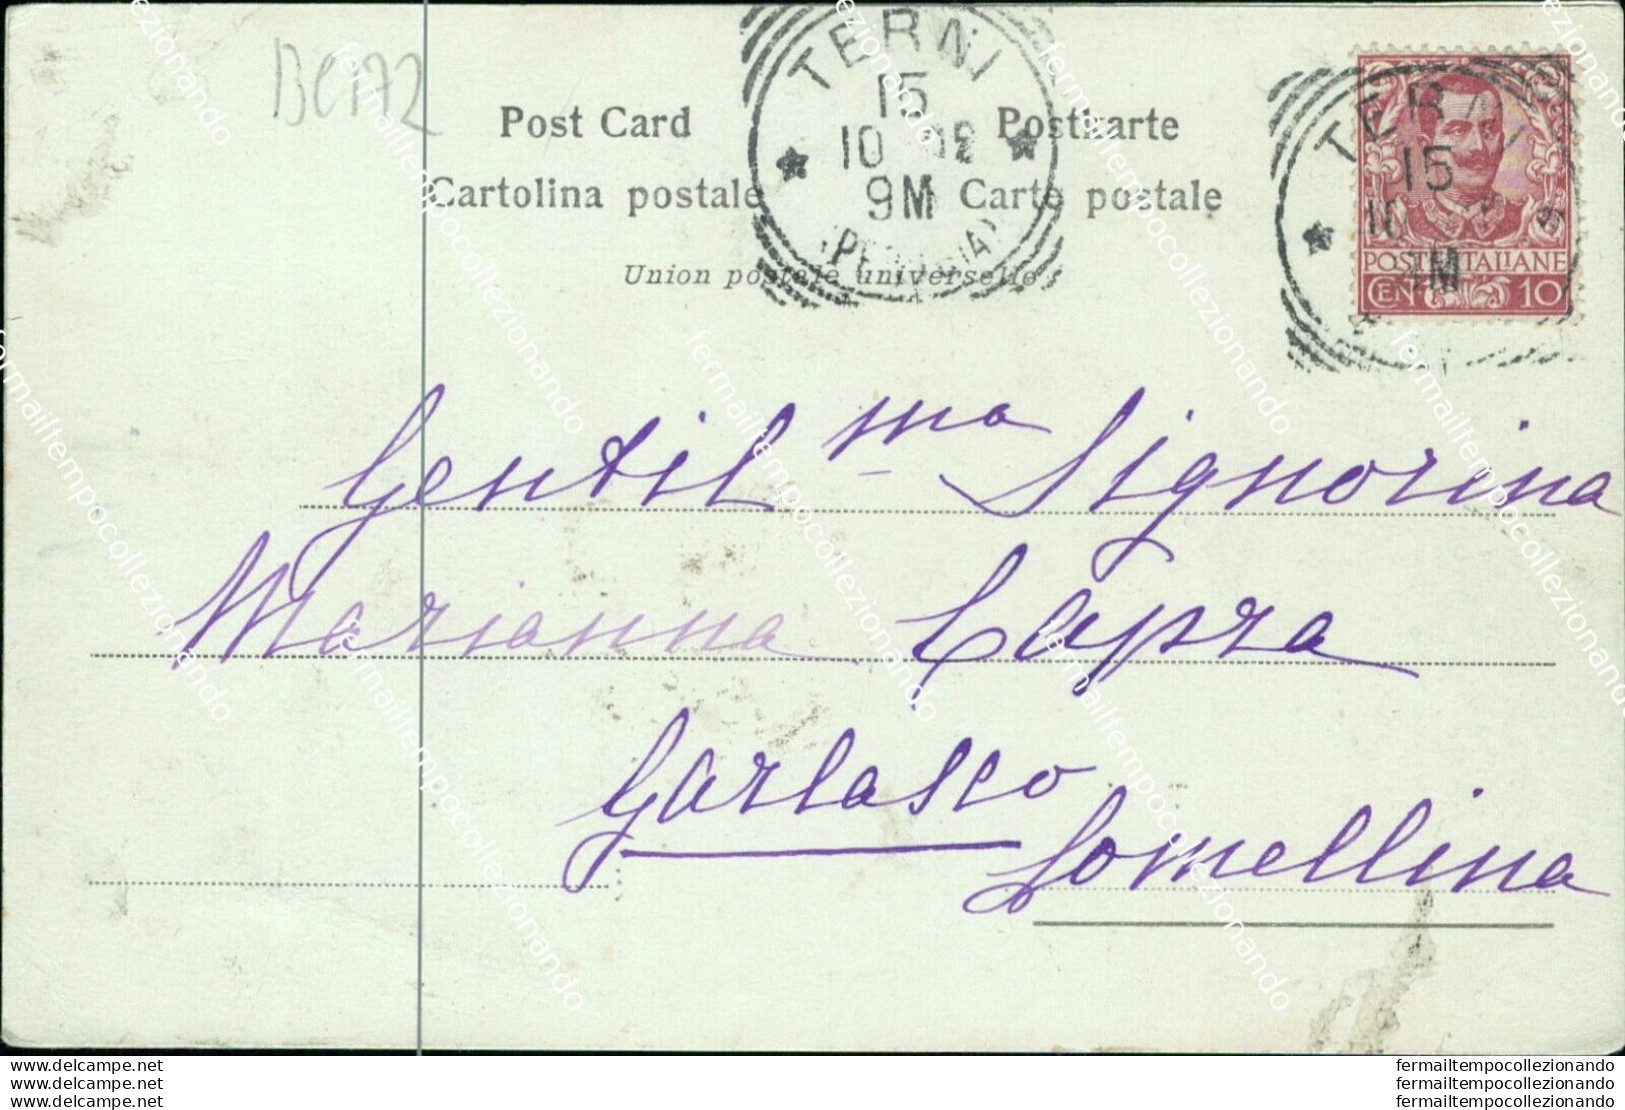 BC172
Post Card Postkarte
Cartolina postale Carte postale
Union postale universelle
TERNI
15
10 02
9M
TERNI
15
10
9M
POSTE ITALIANE
CEN 10
Gentil ma Signorina
Marianna Capra
Garlasco
Lomellina
fermailtempocollezionando
delcampe.net
delcampe.net
delcampe.net
fermailtempocollezionando
fermailtempocollezionando
fermailtempocollezionando